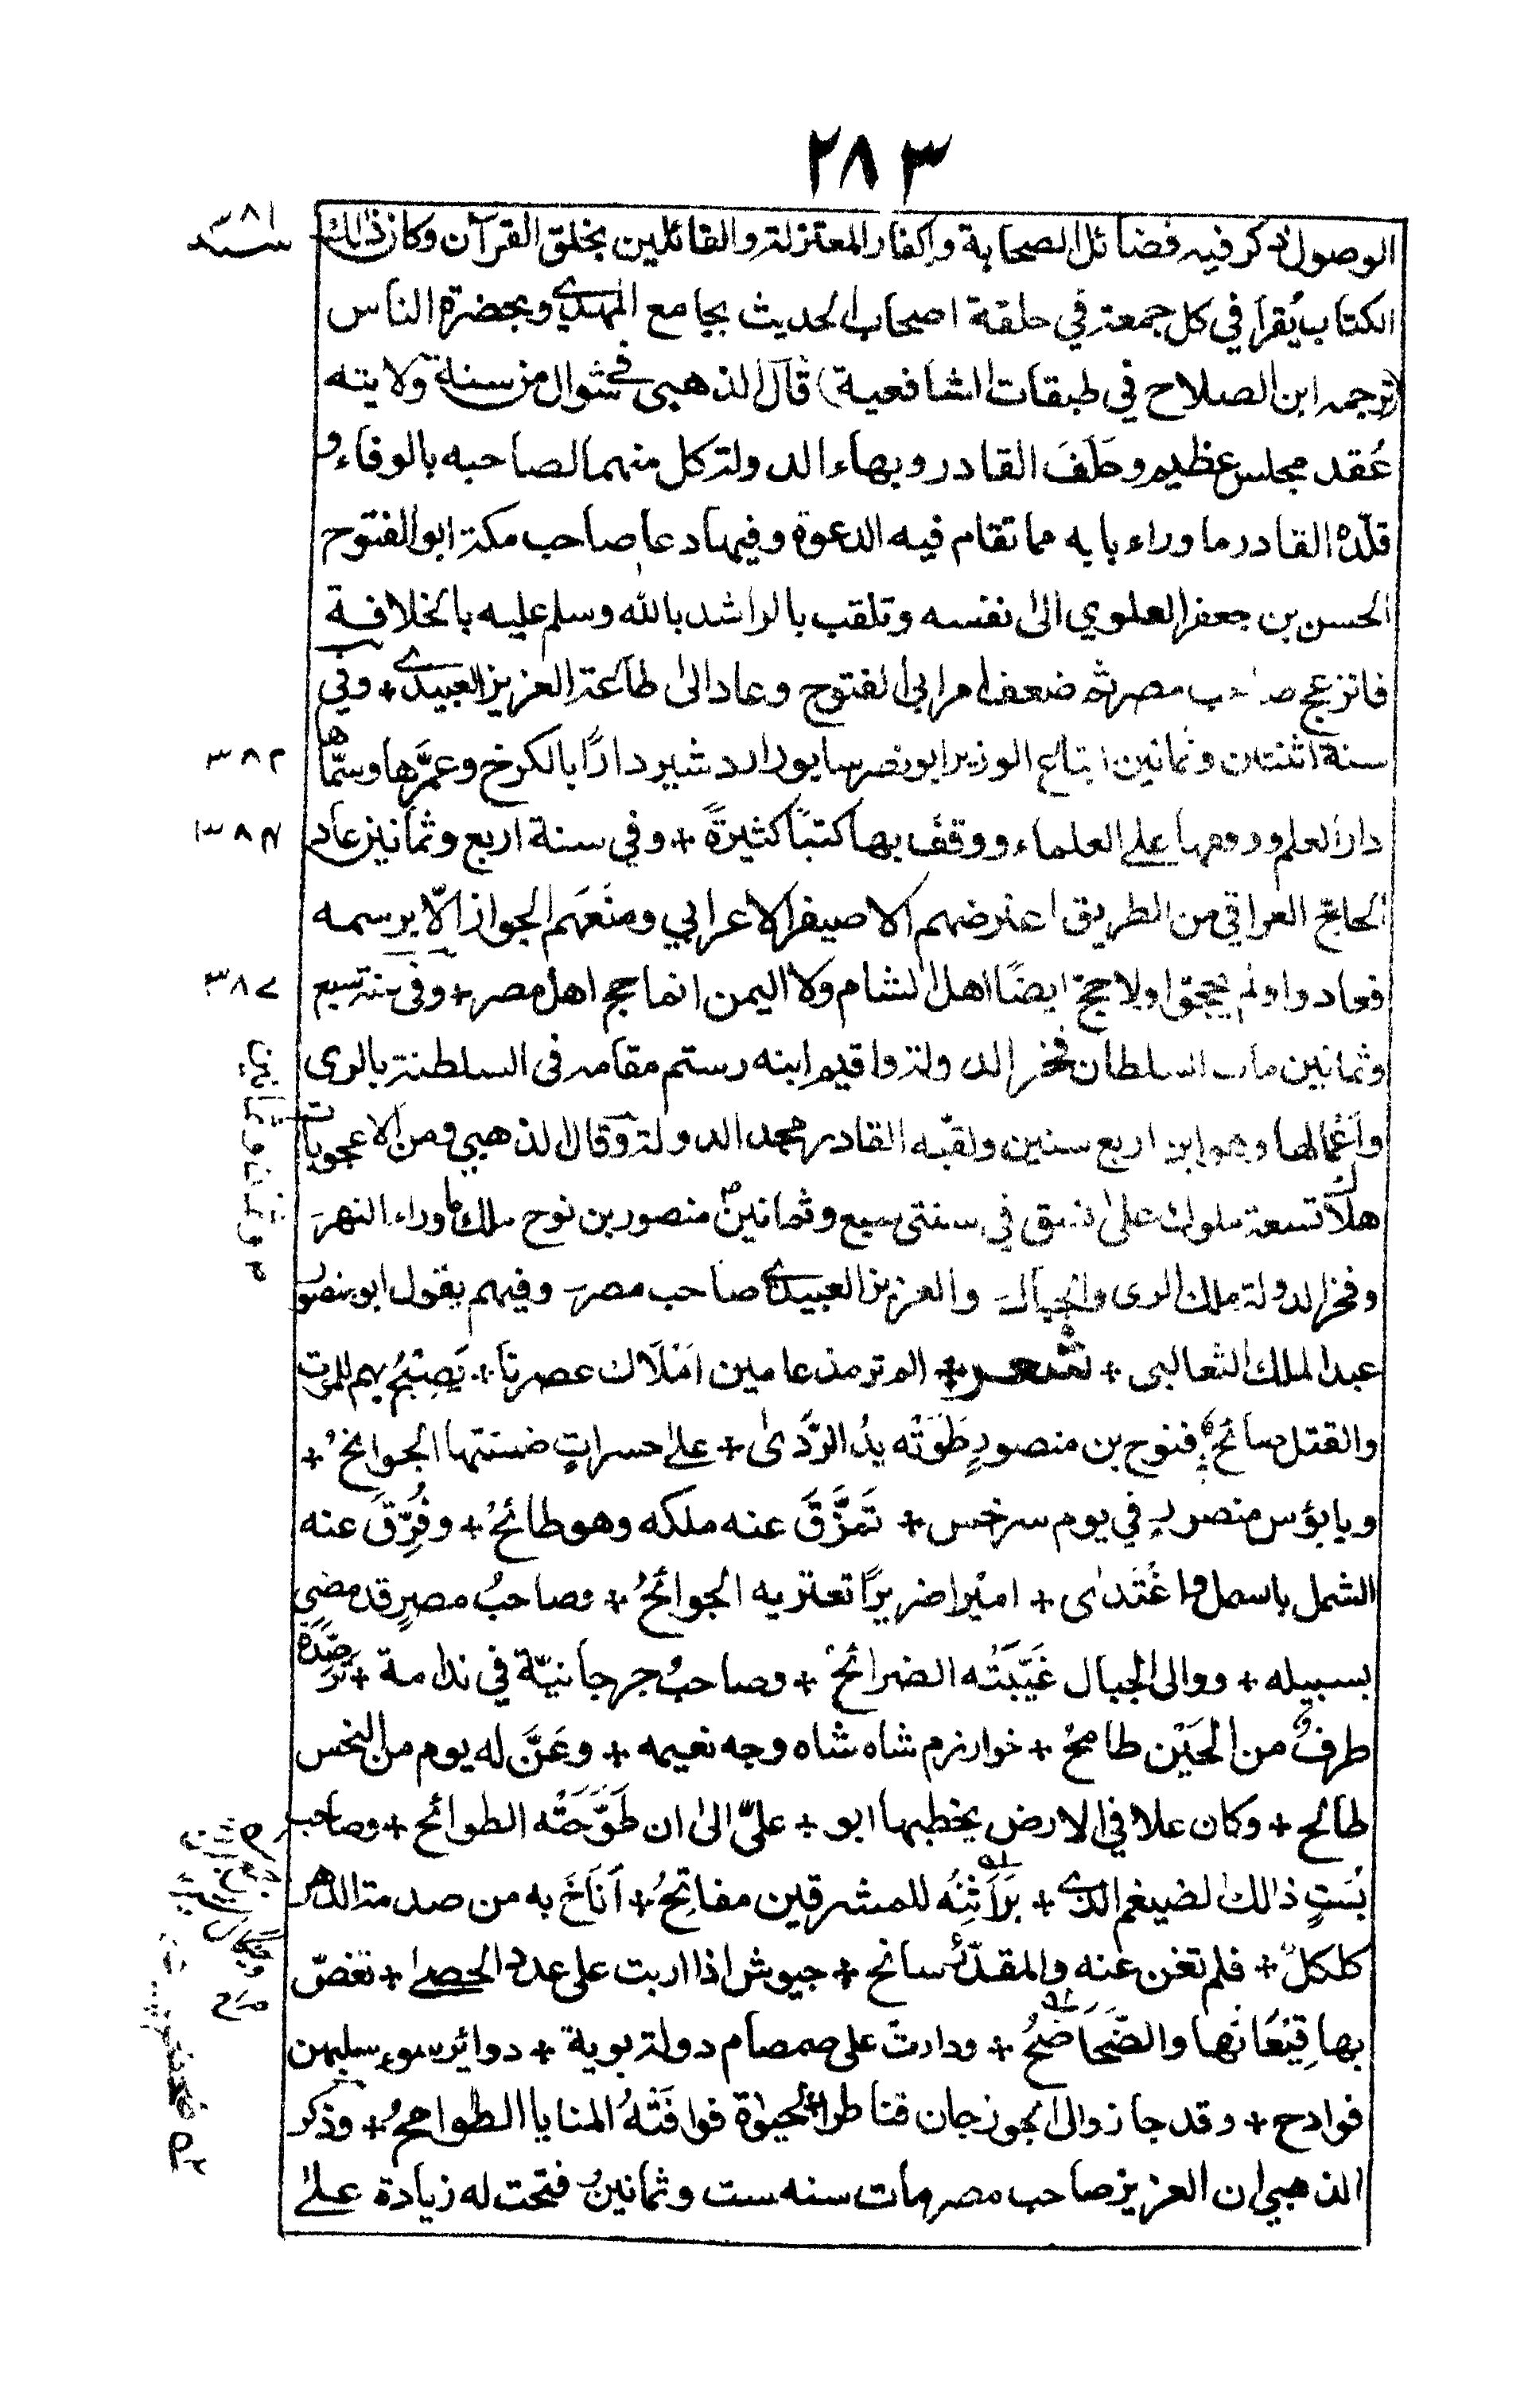 ٢٨٣
الوصول ذكر فيه فضائل الصحابة وإكفار المعتزلة والقائلين بخلق القرآن وكان ذلك
سنة ٣٨١
الكتاب يُقرأ في كل جمعة في حلقة اصحاب الحديث بجامع المهدي وبحضرة الناس
(ترجمه ابن الصلاح في طبقات الشافعية) قال الذهبي في شوال من سنة ولايته
عُقد مجلس عظيم وحَلَفَ القادر وبهاء الدولة كل منهما لصاحبه بالوفاء و
قلّده القادر ما وراء بابه مما تقام فيه الدعوة وفيها دعا صاحب مكة ابو الفتوح
الحسن بن جعفر العلوي الى نفسه وتلقب بالراشد بالله وسلم عليه بالخلافة
فانزعج صاحب مصر ثم ضعف امر ابي الفتوح وعاد الى طاعة العزيز العبيدي + وفي
سنة اثنتين وثمانين ابتاع الوزير ابو نصر سابور اردشير دارًا بالكرخ وعمَّرها وسمّاها
٣٨٢
دار العلم ووقفها على العلماء ووقف بها كتبًا كثيرةً + وفي سنة اربع وثمانين عاد
٣٨٤
الحاج العراقي من الطريق اعترضهم الاصيفر الاعرابي ومنعهم الجواز الّا برسمه
فعادوا ولم يحجوا ولا حج ايضًا اهل الشام ولا اليمن انما حج اهل مصر + وفي سنة سبع
٣٨٧
وثمانين مات السلطان فخر الدولة واقيم ابنه رستم مقامه في السلطنة بالرى
واعمالها وهو ابن اربع سنين ولقّبه القادر مجد الدولة وقال الذهبي ومن الاعجوبات
هلاك تسعة ملوك على نسق في سنتي سبع وثمانين منصور بن نوح ملك ما وراء النهر
وفخر الدولة ملك الرى والجبال والعزيز العبيدي صاحب مصر وفيهم يقول ابو منصور
عبد الملك الثعالبي + شعر + الم تر مذ عامين املَاك عصرنا + يَصِيْحُ بهم للموت
والقتل صائح + فنوح بن منصورٍ طَوَتْه يدُ الرَّدىٰ + على حسراتٍ ضمنتها الجوانحُ +
ويا بؤس منصورٍ في يوم سرخس + تَمَزَّقَ عنه ملكه وهو طائحُ + وفُرِّقَ عنه
الشمل بالسمل واغْتَدىٰ + اميْرا ضريرًا تعتريه الجوائحُ + وصاحبُ مصرٍ قد مضي
بسبيله + ووالى الجبال غَيَّبَتْه الضرائحُ + وصاحبُ جرجانيّة في ندامة + ترصّده
طرفٌ من الحَيْن طامحُ + خوارزم شاه شاه وجه نعيمه + وعَنَّ له يوم من النحس
طالح + وكان علا في الارض يخطبها ابو + عليّ الىٰ ان طَوَّحَتْه الطوائح + وصاحب
بُستٍ ذلك الضيغم الذي + بَرَاثِنُه للمشرقين مفاتِحُ + اَنَاخَ به من صدمة الدهر
كلكلٌ + فلم تغن عنه والمقدّر سانح + جيوش اذا اربت على عدد الحصىٰ + تغصّ
بها قِيْعَانُها والضَّحَاضِحُ + ودارت على صمصام دولة بوية + دوائر سوء سلبهن
فوادح + وقد جاز والى الجوزجان قناطر الحيوٰة فوافَتْهُ المنايا الطوامحُ + وذكر
الذهبي ان العزيز صاحب مصر مات سنه ست وثمانين فتحت له زيادة على